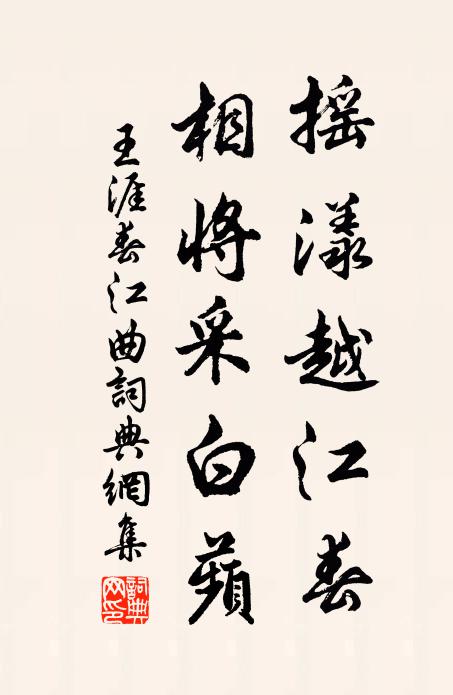 摇漾越江春
相將采白蘋
王涯春江曲詞典網集